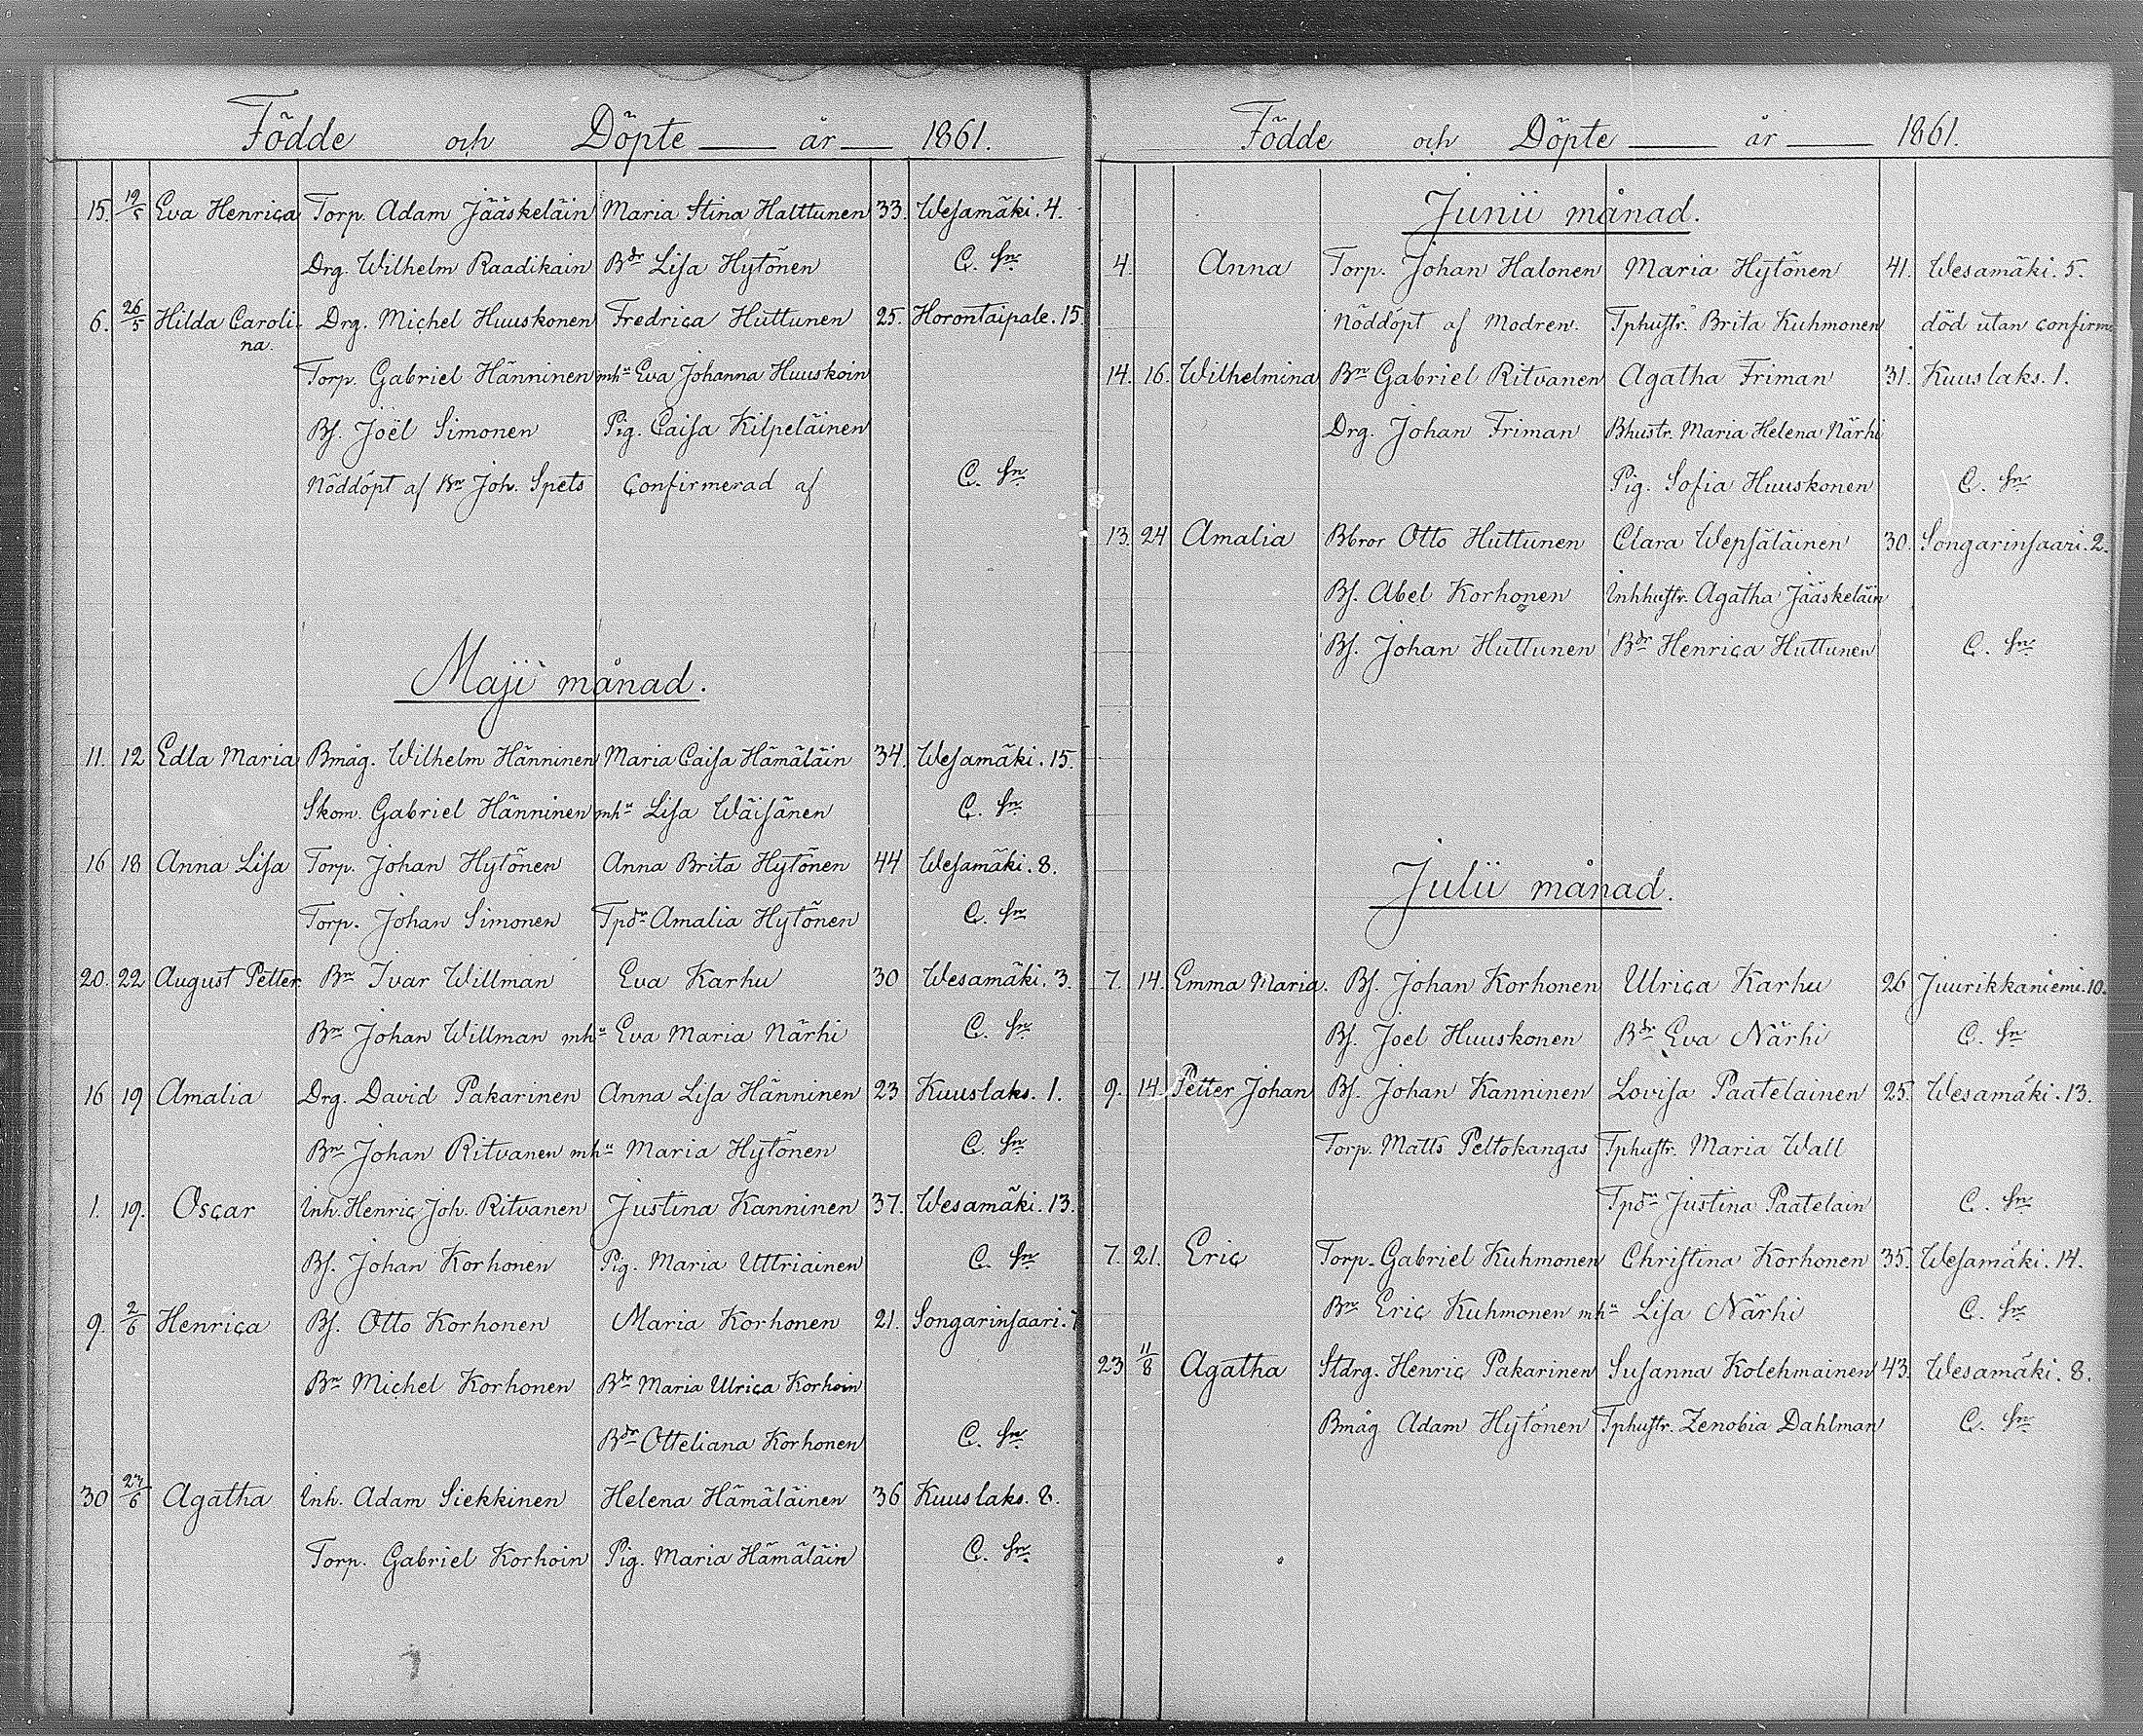 Födde och Döpte år 1861.
15. 19/5 Eva Henrica Torp. Adam Jääskeläin Maria Stina Halttunen 33. Wesamäki. 4.
Drg. Wilhelm Raadikain Bdr Lisa Hytönen C. Sn.
6. 26/5 Hilda Caroli- Drg. Michel Huuskonen Fredrica Huttunen 25. Horontaipale. 15.
na.
Torp. Gabriel Hänninen mhu Eva Johanna Huuskoin
Bs. Joël Simonen Pig. Caisa Kilpeläinen
Nöddöpt af Bn Joh. Spets Confirmerad af C. Sn.
Maji månad.
11. 12 Edla Maria Bmåg. Wilhelm Hänninen Maria Caisa Hämäläin 34. Wesamäki. 15.
Skom. Gabriel Hänninen mhu Lisa Wäisänen C. Sn.
16 18 Anna Lisa Torp. Johan Hytönen Anna Brita Hytönen 44 Wesamäki. 8.
Torp. Johan Simonen Tpdr Amalia Hytönen C. Sn.
20. 22 August Petter Bn Ivar Willman Eva Karhu 30 Wesamäki. 3.
Bn Johan Willman mhu Eva Maria Närhi C. Sn.
16 19 Amalia Drg. David Pakarinen Anna Lisa Hänninen 23 Kuuslaks. 1.
Bn Johan Ritvanen mhu Maria Hytönen C. Sn.
1. 19. Oscar Inh. Henric Joh. Ritvanen Justina Kanninen 37. Wesamäki. 13.
Bs. Johan Korhonen Pig. Maria Uttriainen C. Sn.
9. 2/6 Henrica Bs. Otto Korhonen Maria Korhonen 21. Songarinsaari.
Bn Michel Korhonen Bdr Maria Ulrica Korhoin
Bdr Otteliana Korhonen C. Sn.
30 23/6 Agatha Inh. Adam Siekkinen Helena Hämäläinen 36 Kuuslaks. 8.
Torp. Gabriel Korhoin Pig. Maria Hämäläin C. Sn.
Födde och Döpte år 1861.
Junii månad.
4. Anna Torp. Johan Halonen Maria Hytönen 41. Wesamäki. 5.
Nöddöpt af Modren. Tphustr. Brita Kuhmonen död utan confirm.
14. 16. Wilhelmina Bn Gabriel Ritvanen Agatha Friman 31. Kuuslaks. 1.
Drg. Johan Friman Bhustr. Maria Helena Närhi
Pig. Sofia Huuskonen C. Sn.
13. 24 Amalia Bbror Otto Huttunen Clara Wepsäläinen 30. Songarinsaari. 2.
Bs. Abel Korhonen Inhhustr. Agatha Jääskeläin
Bs. Johan Huttunen Bdr Henrica Huttunen C. Sn.
Julii månad.
7. 14. Emma Maria. Bs. Johan Korhonen Ulrica Karhu 26 Juurikkaniemi. 10.
Bs. Joel Huuskonen Bdr Eva Närhi C. Sn.
9. 14 Petter Johan Bs. Johan Kanninen Lovisa Paatelainen 25. Wesamäki. 13.
Torp. Matts Peltokangas Tphustr. Maria Wall
Tpdr Justina Paatelain C. Sn.
7. 21. Eric Torp. Gabriel Kuhmonen Christina Korhonen 35. Wesamäki. 14.
Bn Eric Kuhmonen mhu Lisa Närhi C. Sn.
23 11/8 Agatha Stdrg. Henric Pakarinen Susanna Kolehmainen 43. Wesamäki. 8.
Bmåg Adam Hytönen Tphustr. Zenobia Dahlman C. Sn.